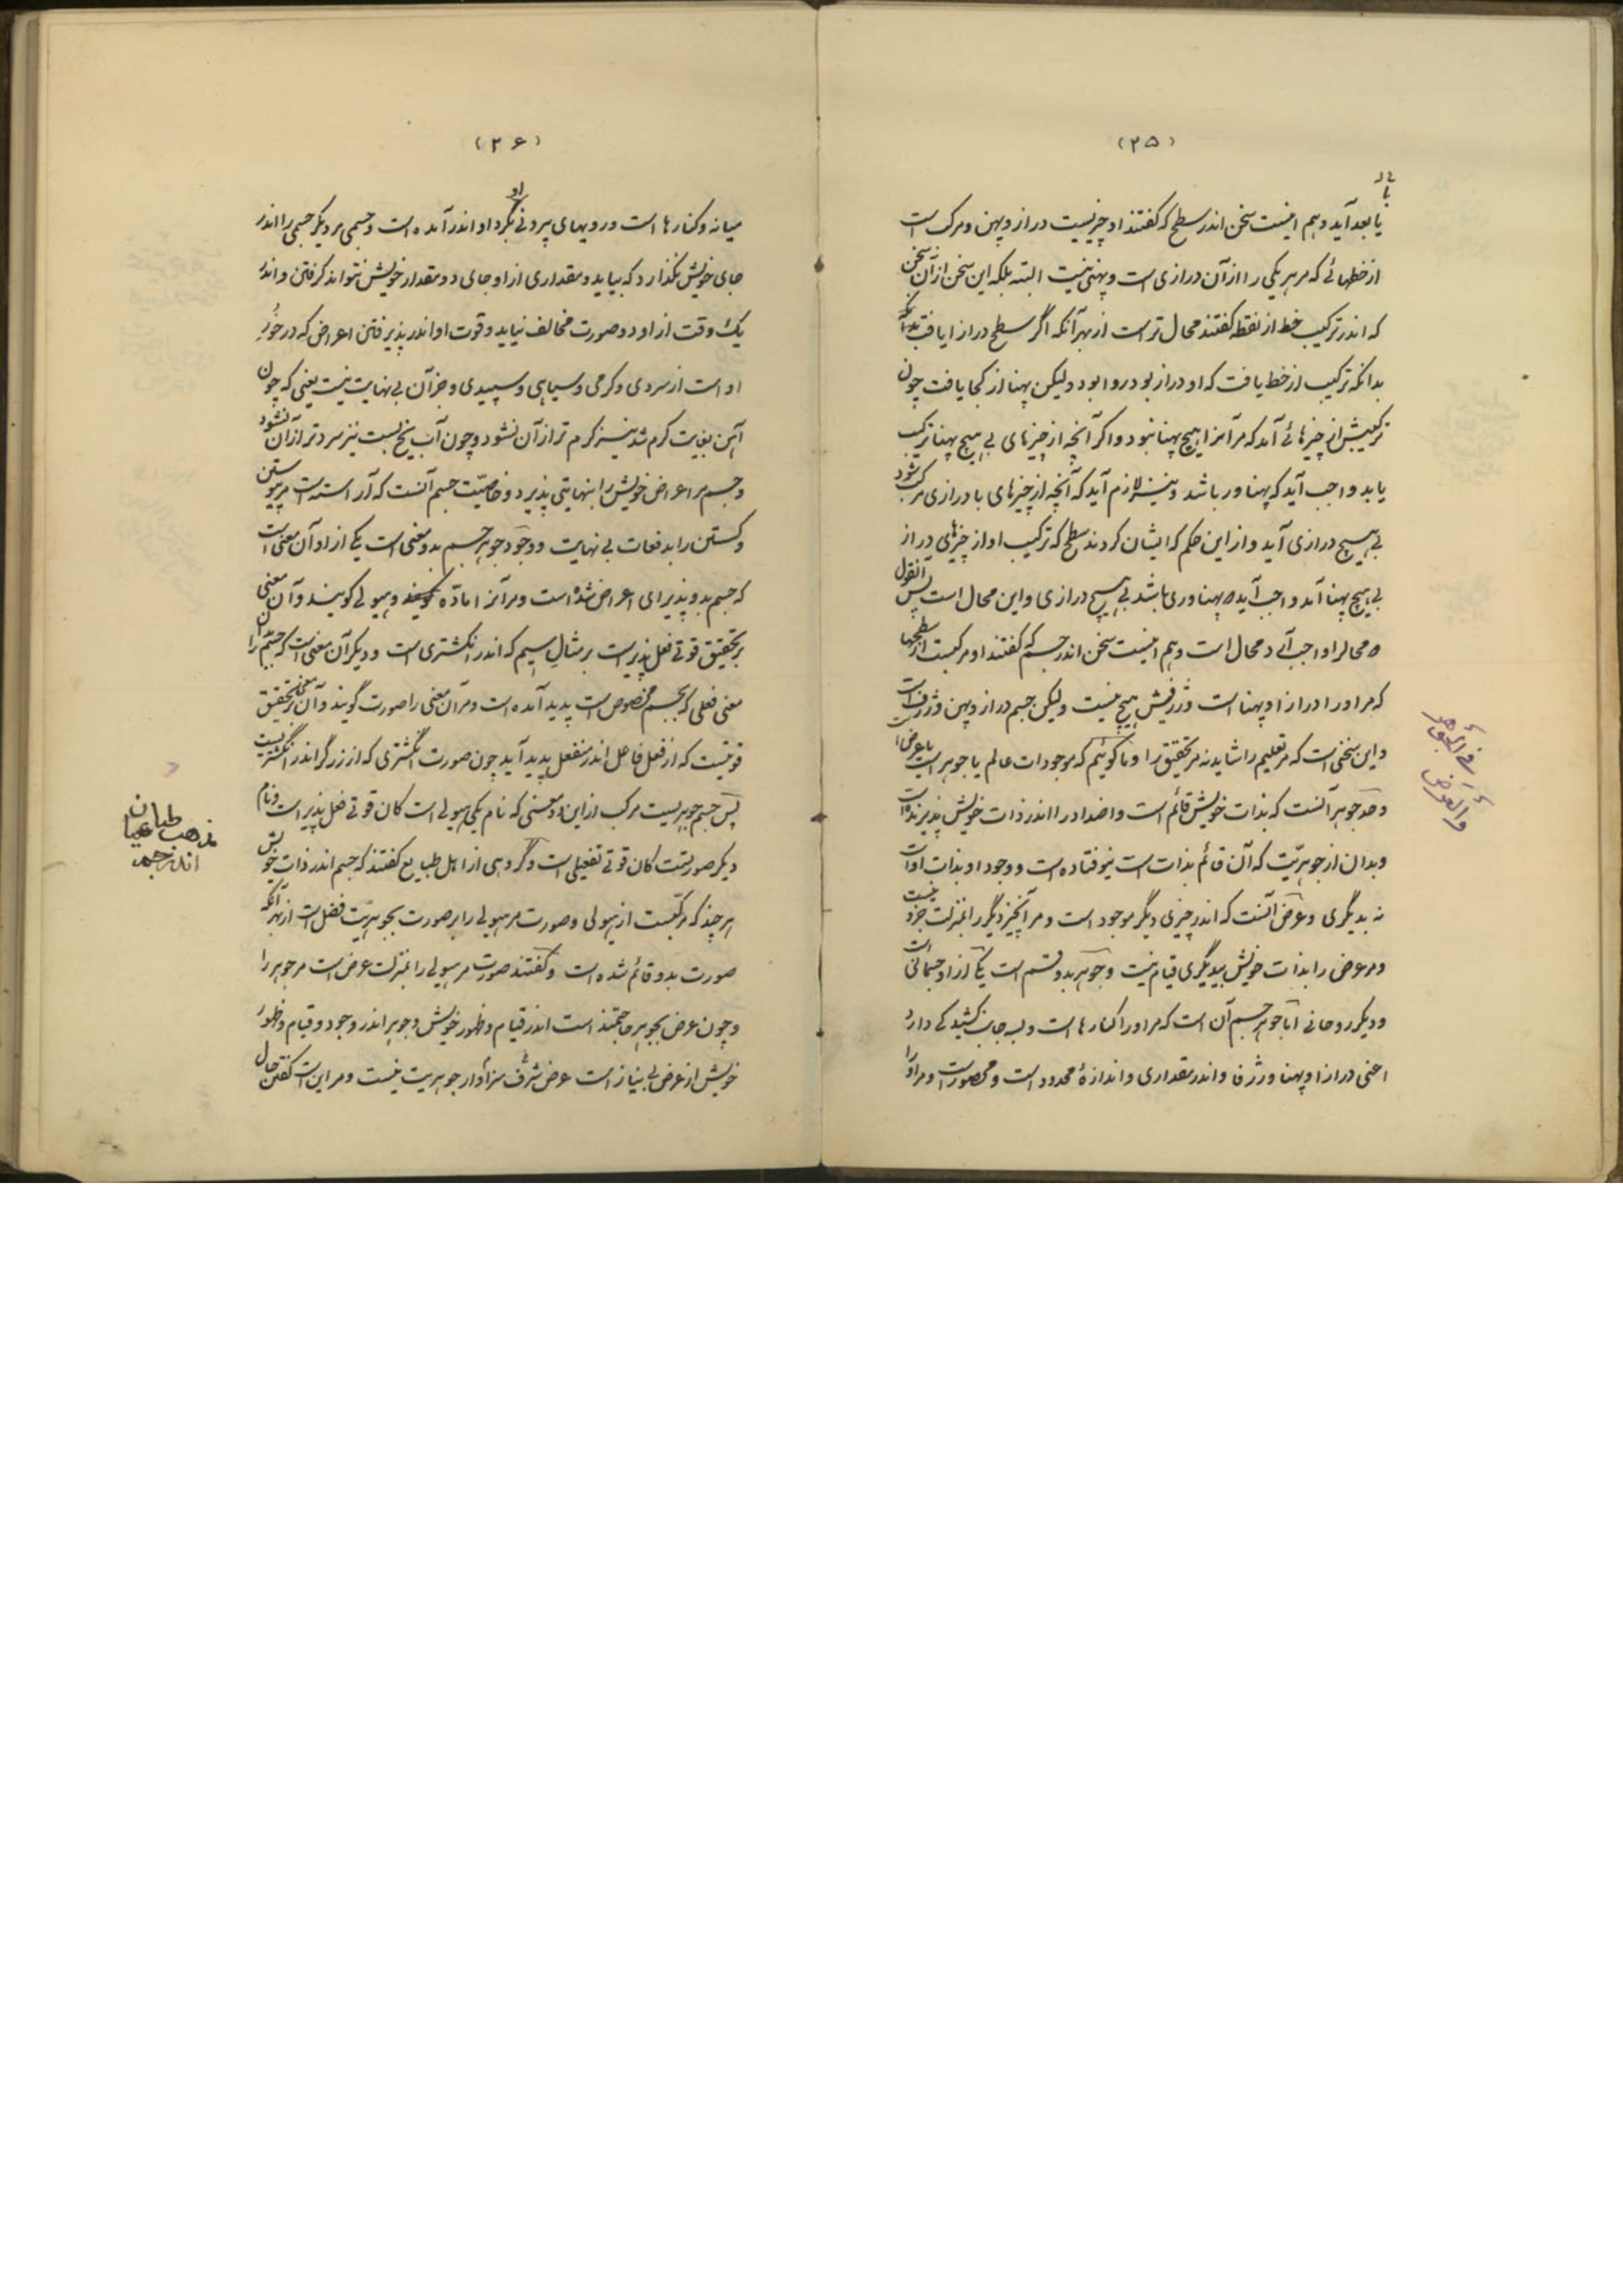 (۲۵)
یا بعد آید و هم اینست سخن اندر سطح که گفتند او چیزیست دراز و پهن و مرکب است
از خطهائی که مر هر یکی را از آن درازی است و پهنی نیست البته بلکه این سخن از آن سخن
که اندر ترکیب خط از نقطه گفتند محال تر است از بهر آنکه اگر سطح درازا یافت بدانکه
بدانکه ترکیب از خط یافت که او دراز بود روا بود ولیکن پهنا از کجا یافت چون
ترکیبش از چیزهائی آمد که مر آنرا هیچ پهنا نبود و اگر آنچه از چیزهای بی هیچ پهنا ترکیب
یابد واجب آید که پهناور باشد و نیز لازم آید که آنچه از چیزهای با درازی مرکب شود
بی هیچ درازی آید و از این حکم که ایشان کردند سطح که ترکیب او از چیزهای دراز
بی هیچ پهنا آمد واجب آید که پهناوری باشد بی هیچ درازی و این محال است پس آنقول
که محالرا واجب آرد محال است و هم اینست سخن اندر جسم که گفتند او مرکبست از سطحها
که مر او را درازا و پهنا است و ژرفیش هیچ نیست ولیکن جسم دراز و پهن و ژرف است
و این سخنی است که مر تعلیم را شاید نه مر تحقیق را و ما گوئیم که موجودات عالم یا جوهر است یا عرض
و حد جوهر آنست که بذات خویش قائم است و اضداد را اندر ذات خویش پذیرنده است
و بدان از جوهریّت که آن قائم بذات است نیوفتاده است و وجود او بذات اوست
نه بدیگری و عرض آنست که اندر چیزی دیگر موجود است و مر آنچیز دیگر را بمنزلت جزو نیست
و مر عرض را بذات خویش بیدیگری قیام نیست و جوهر بدو قسم است یکی از او جسمانی است
و دیگر روحانی اما جوهر جسم آن است که مر او را کنارها است و بسه جانب کشیدگی دارد
اعنی درازا و پهنا و ژرفا و اندر مقداری و اندازهٔ محدود است و محصور است و مر او را
فی الجوهر
والعرض
(۲۶)
میانه و کنارها است و رویهای بیرونی بگرد او اندر آمده است و جسمی مر دیگر جسمی را اندر
جای خویش نگذارد که بیاید و مقداری از او جای دو مقدار خویش نتواند گرفتن و اندر
یک وقت از او دو صورت مخالف نیاید و قوت او اندر پذیرفتن اعراض که در خور
او است از سردی و گرمی و سیاهی و سپیدی و جز آن بی نهایت نیست یعنی که چون
آهن بغایت گرم شد نیز گرم تر از آن نشود و چون آب یخ بست نیز سردتر از آن نشود
و جسم مر اعراض خویش را بنهایتی پذیرد و خاصیّت جسم آنست که آراسته است مر پیوستن
و گسستن را بدفعات بی نهایت و وجود جوهر جسم بدو معنی است یکی از او آن معنی است
که جسم بدو پذیرای اعراض شده است و مر آنرا مادّه گویند و هیولی گویند و آن معنی
بر تحقیق قوتی فعل پذیر است بر مثال سیم که اندر انگشتری است و دیگر آن معنی است که جسم را بدان
معنی فعلی که بجسم مخصوص است پدید آمده است و مر آن معنی را صورت گویند و آن معنی بر تحقیق
قوتیست که از فعل فاعل اندر منفعل پدید آید چون صورت انگشتری که از زرگر اندر انگشتریست
پس جسم جوهریست مرکب از این دو معنی که نام یکی هیولی است کان قوتی فعل پذیر است و نام
دیگر صورتست کان قوتی تفعیلی است و گروهی از اهل طبایع گفتند که جسم اندر ذات خویش
هر چند که مرکّبست از هیولی و صورت مر هیولی را بر صورت بجوهریّت فضل است از بهر آنکه
صورت بدو قائم شده است و گفتند صورت مر هیولی را بمنزلت عرض است مر جوهر را
و چون عرض بجوهر حاجتمند است اندر قیام و ظهور خویش و جوهر اندر وجود و قیام و ظهور
خویش از عرض بی نیاز است عرض شرف سزاوار جوهریت نیست و مر این است گفتن حال
مذهب طباعیان
اندر جسم